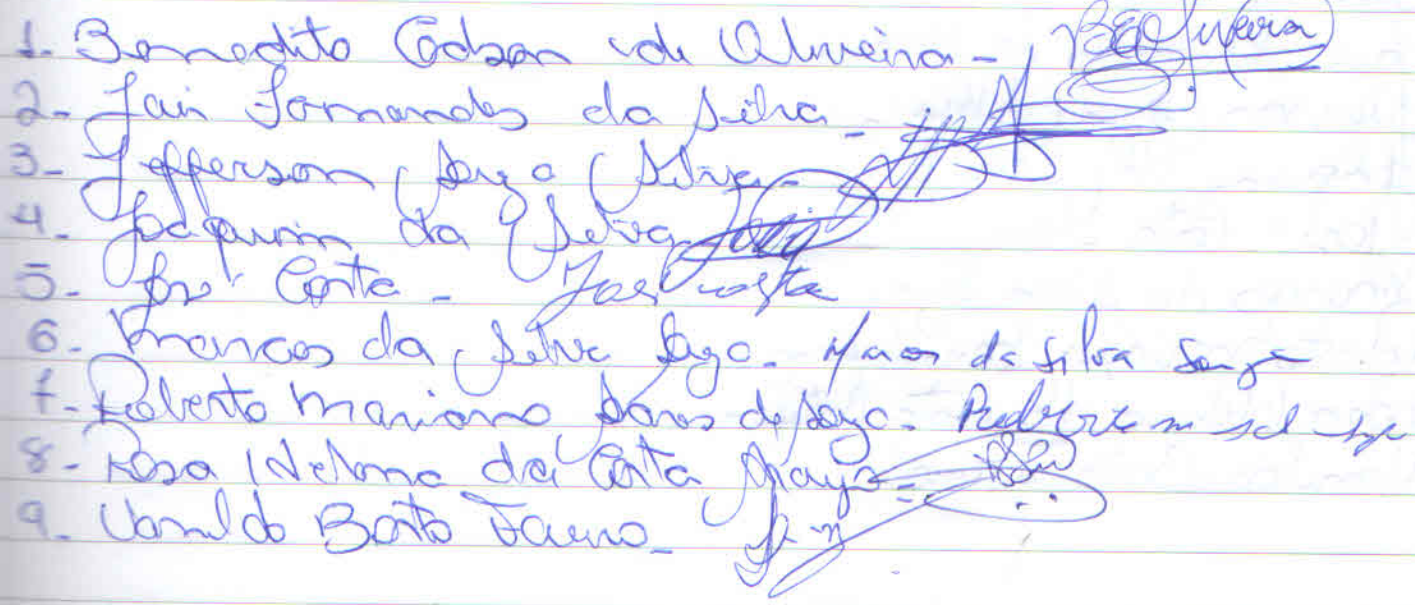 1. Benedito Edson de Oliveira - BEOliveira
2- Jair Fernandes da Silva -
3- Jefferson Souza Silva -
4- Joaquim da Silva
5- José Costa - José Costa
6- Marcos da Silva Souza - Marcos da Silva Souza
7- Roberto Mariano Soares de Souza -
8- Rosa Helena da Costa Araújo -
9- Vanildo Bento